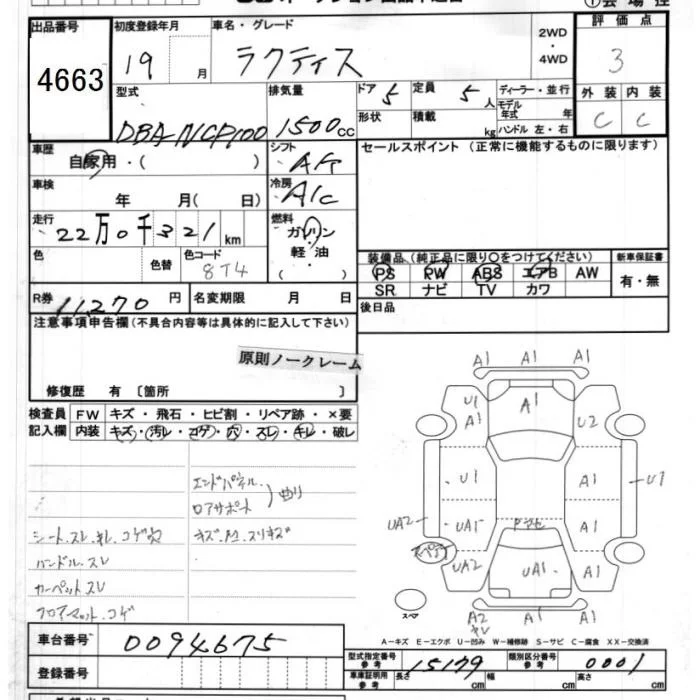 出品番号 初度登録年月 車名・グレード 2WD・4WD 評価点
4663 19 月 ラクティス 3
型式 排気量 ドア 5 定員 5 人 ディーラー・並行 外装 内装
DBA-NCP100 1500cc 形状 積載 kg モデル年式 年 ハンドル 左・右 C C
車歴 自家用・( ) シフト AT セールスポイント (正常に機能するものに限ります)
車検 年 月( 日) 冷房 A/C
走行 22万0千321km 燃料 ガソリン・軽油 ( )
色 色替 色コード 8T4
装備品 (純正品に限り○をつけてください) 新車保証書
PS PW ABS エアB AW 有・無
SR ナビ TV カワ
R券 11,270 円 名変期限 月 日 後日品
注意事項申告欄 (不具合内容等は具体的に記入して下さい)
原則ノークレーム
修復歴 有 〔箇所 〕
検査員 FW キズ・飛石・ヒビ割・リペア跡・×要
記入欄 内装 キズ・汚レ・コゲ・穴・スレ・キレ・破レ
エンドパネル
ロアサポート 曲り
シート.スレ.キレ.コゲ穴
ハンドル.スレ
カーペットスレ
フロアマット.コゲ
A1 A1 A1
U1 A1 A1 U2
U1 A1 U1
UA2 UA1 A1
スペア UA2 UA1 A1 A1
スペア A2 A1
A-キズ E-エクボ U-凹み W-補修跡 S-サビ C-腐食 XX-交換済
車台番号 0094675
型式指定番号 参考 15179 類別区分番号 参考 0001
登録番号 車庫証明用 参考 長さ cm 幅 cm 高さ cm